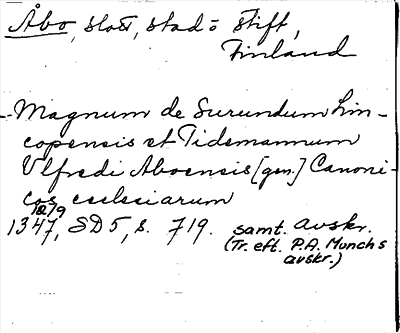 Åbo, slott, stad o stift,
Finland
- Magnum de Surundum Lin-
copensis et Tidemannum
Ulfredi Aboensis [gen.] Canoni-
cos ecclesiarum
12/9
1347, SD 5, s. 719. samt. avskr.
(Tr. eft. P.A. Munchs
avskr.)